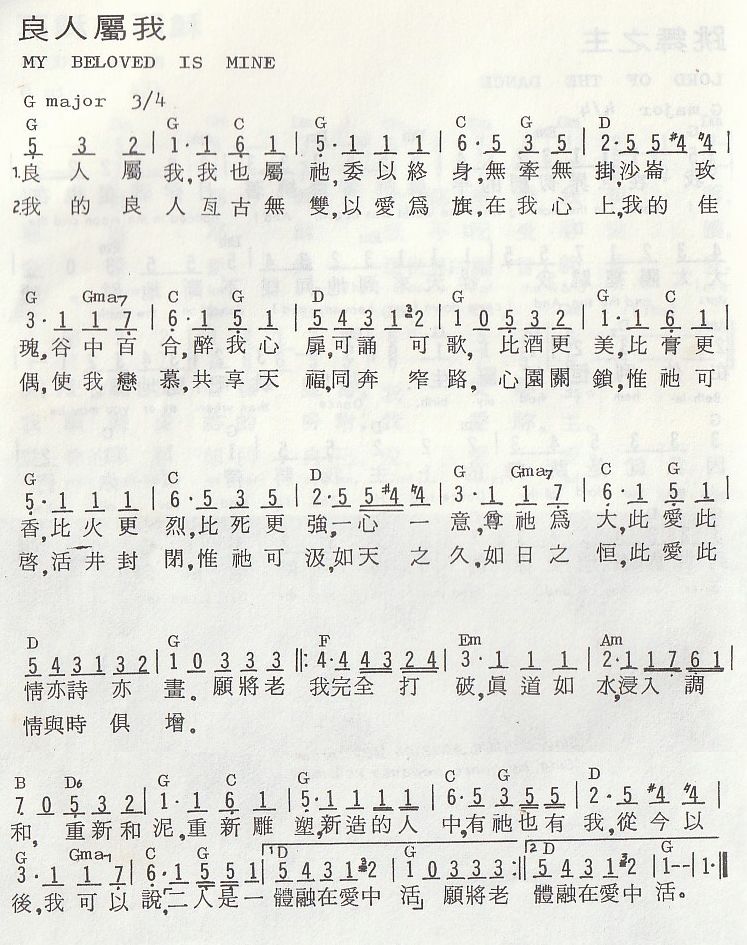 良人屬我
MY BELOVED IS MINE
G major 3/4
G G C G C G D
5 3 2 | 1· 1 6 1 | 5· 1 1 1 | 6· 5 3 5 | 2· 5 5 #4 ♮4 |
1.良人屬我,我也屬祂,委以終身,無牽無掛,沙崙玫
2.我的良人亙古無雙,以愛為旗,在我心上,我的佳
G Gma7 C G D G G C
3· 1 1 7 | 6· 1 5 1 | 5 4 3 1 3 2 | 1 0 5 3 2 | 1· 1 6 1 |
瑰,谷中百合,醉我心扉,可誦可歌,比酒更美,比膏更
偶,使我戀慕,共享天福,同奔窄路,心園關鎖,惟祂可
G C D G Gma7 C G
5· 1 1 1 | 6· 5 3 5 | 2· 5 5 #4 ♮4 | 3· 1 1 7 | 6· 1 5 1 |
香,比火更烈,比死更強,一心一意,尊祂爲大,此愛此
啓,活井封閉,惟祂可汲,如天之久,如日之恒,此愛此
D G F Em Am
5 4 3 1 3 2 | 1 0 3 3 3 ‖: 4· 4 4 3 2 4 | 3· 1 1 1 | 2· 1 1 7 6 1 |
情亦詩亦畫。願將老我完全打破,眞道如水,浸入調
情與時俱增。
B D6 G C G C G D
7 0 5 3 2 | 1· 1 6 1 | 5· 1 1 1 1 | 6· 5 3 5 5 | 2· 5 #4 ♮4 |
和,重新和泥,重新雕塑,新造的人中,有祂也有我,從今以
G Gma7 C G 1 D G 2 D G
3· 1 1 7 | 6· 1 5 5 1 | 5 4 3 1 3 2 | 1 0 3 3 3 :‖ 5 4 3 1 3 2 | 1-- | 1· ‖
後,我可以說,「二人是一體融在愛中活」願將老 體融在愛中活。